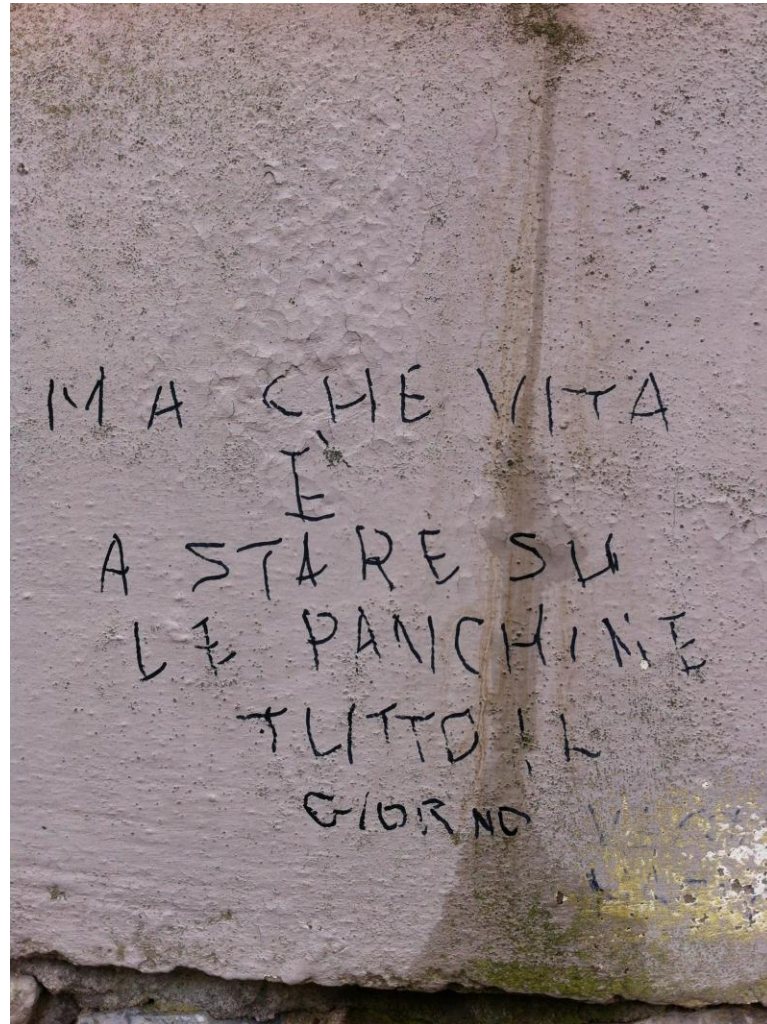 MA CHE VITA
È
A STARE SU
LE PANCHINE
TUTTO IL
GIORNO